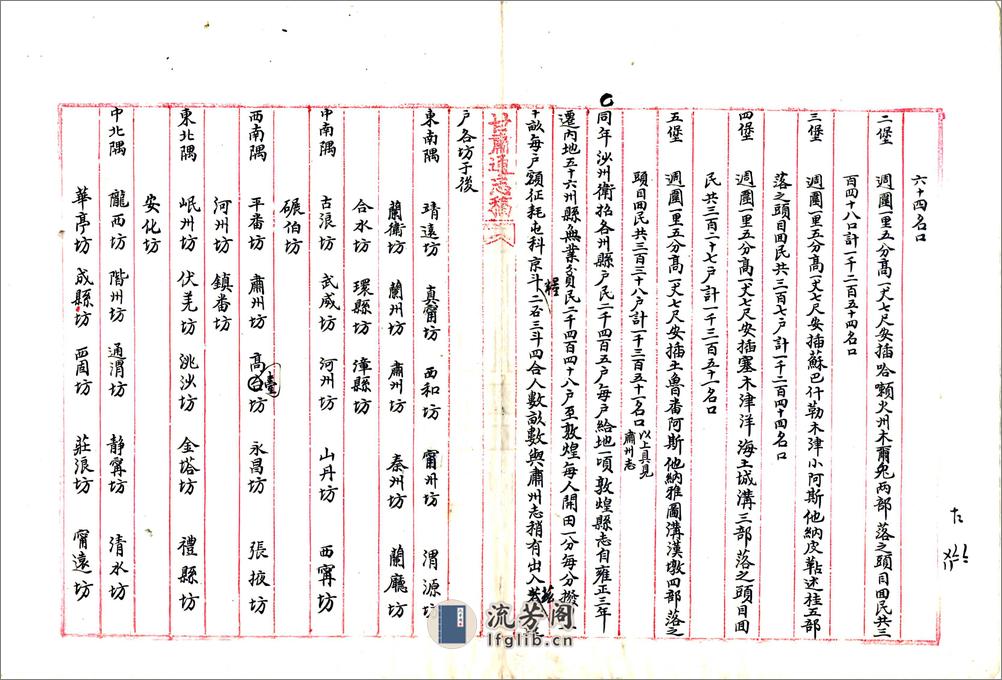 六十四名口
二堡 週圍一里五分高一丈七尺安插哈喇火州木爾兎两部落之頭目囬民共三
百四十八口計一千二百五十四名口
三堡 週圍一里五分高一丈七尺安插蘇巴什勒木津小阿斯他納皮𩋃述桂五部
落之頭目囬民共三百七户計一千二百四十四名口
四堡 週圍一里五分高一丈七尺安插塞木津洋海土城溝三部落之頭目囬
民共三百二十七户計一千三百五十一名口
五堡 週圍一里五分高一丈七尺安插土魯番阿斯他納雅圖溝漢墩四部落之
頭目囬民共三百三十八户計一千三百五十一名口以上具見肅州志
同年沙州衛招各州縣户民一千四百五户每户給地一頃敦煌縣志自雍正三年
遷内地五十六州縣無業貧民二千四百四十八户至敦煌每人開田一分每分撥
十畝每户額征耗屯科京斗糧二石三斗四合人数畝数與肅州志稍有出入茲
户各坊于後
甘肅通志稿
東南隅 靖遠坊 真甯坊 西和坊 甯州坊 渭源坊
蘭衛坊 蘭州坊 肅州坊 秦州坊 蘭廳坊
合水坊 環縣坊 漳縣坊
中南隅 古浪坊 武威坊 河州坊 山丹坊 西寧坊
碾伯坊
西南隅 平番坊 肅州坊 高臺坊 永昌坊 張掖坊
河州坊 鎮番坊
東北隅 岷州坊 伏羌坊 洮沙坊 金塔坊 禮縣坊
安化坊
中北隅 隴西坊 階州坊 通渭坊 静寗坊 清水坊
華亭坊 成縣坊 西固坊 莊浪坊 甯遠坊
流芳阁
lfglib.cn